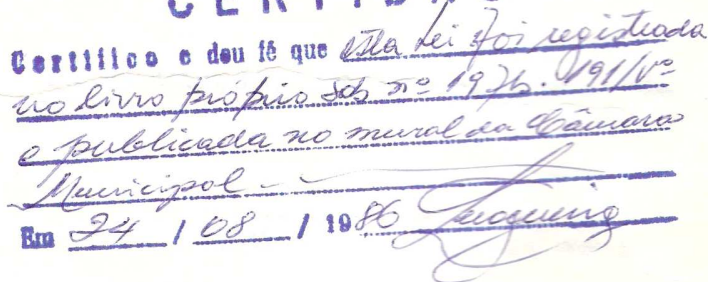 CERTIDÃO
Certifico e dou fé que esta Lei foi registrada
no livro próprio sob nº 197 fs. 191/Vº
e publicada no mural da Câmara
Municipal
Em 24 / 08 / 1986